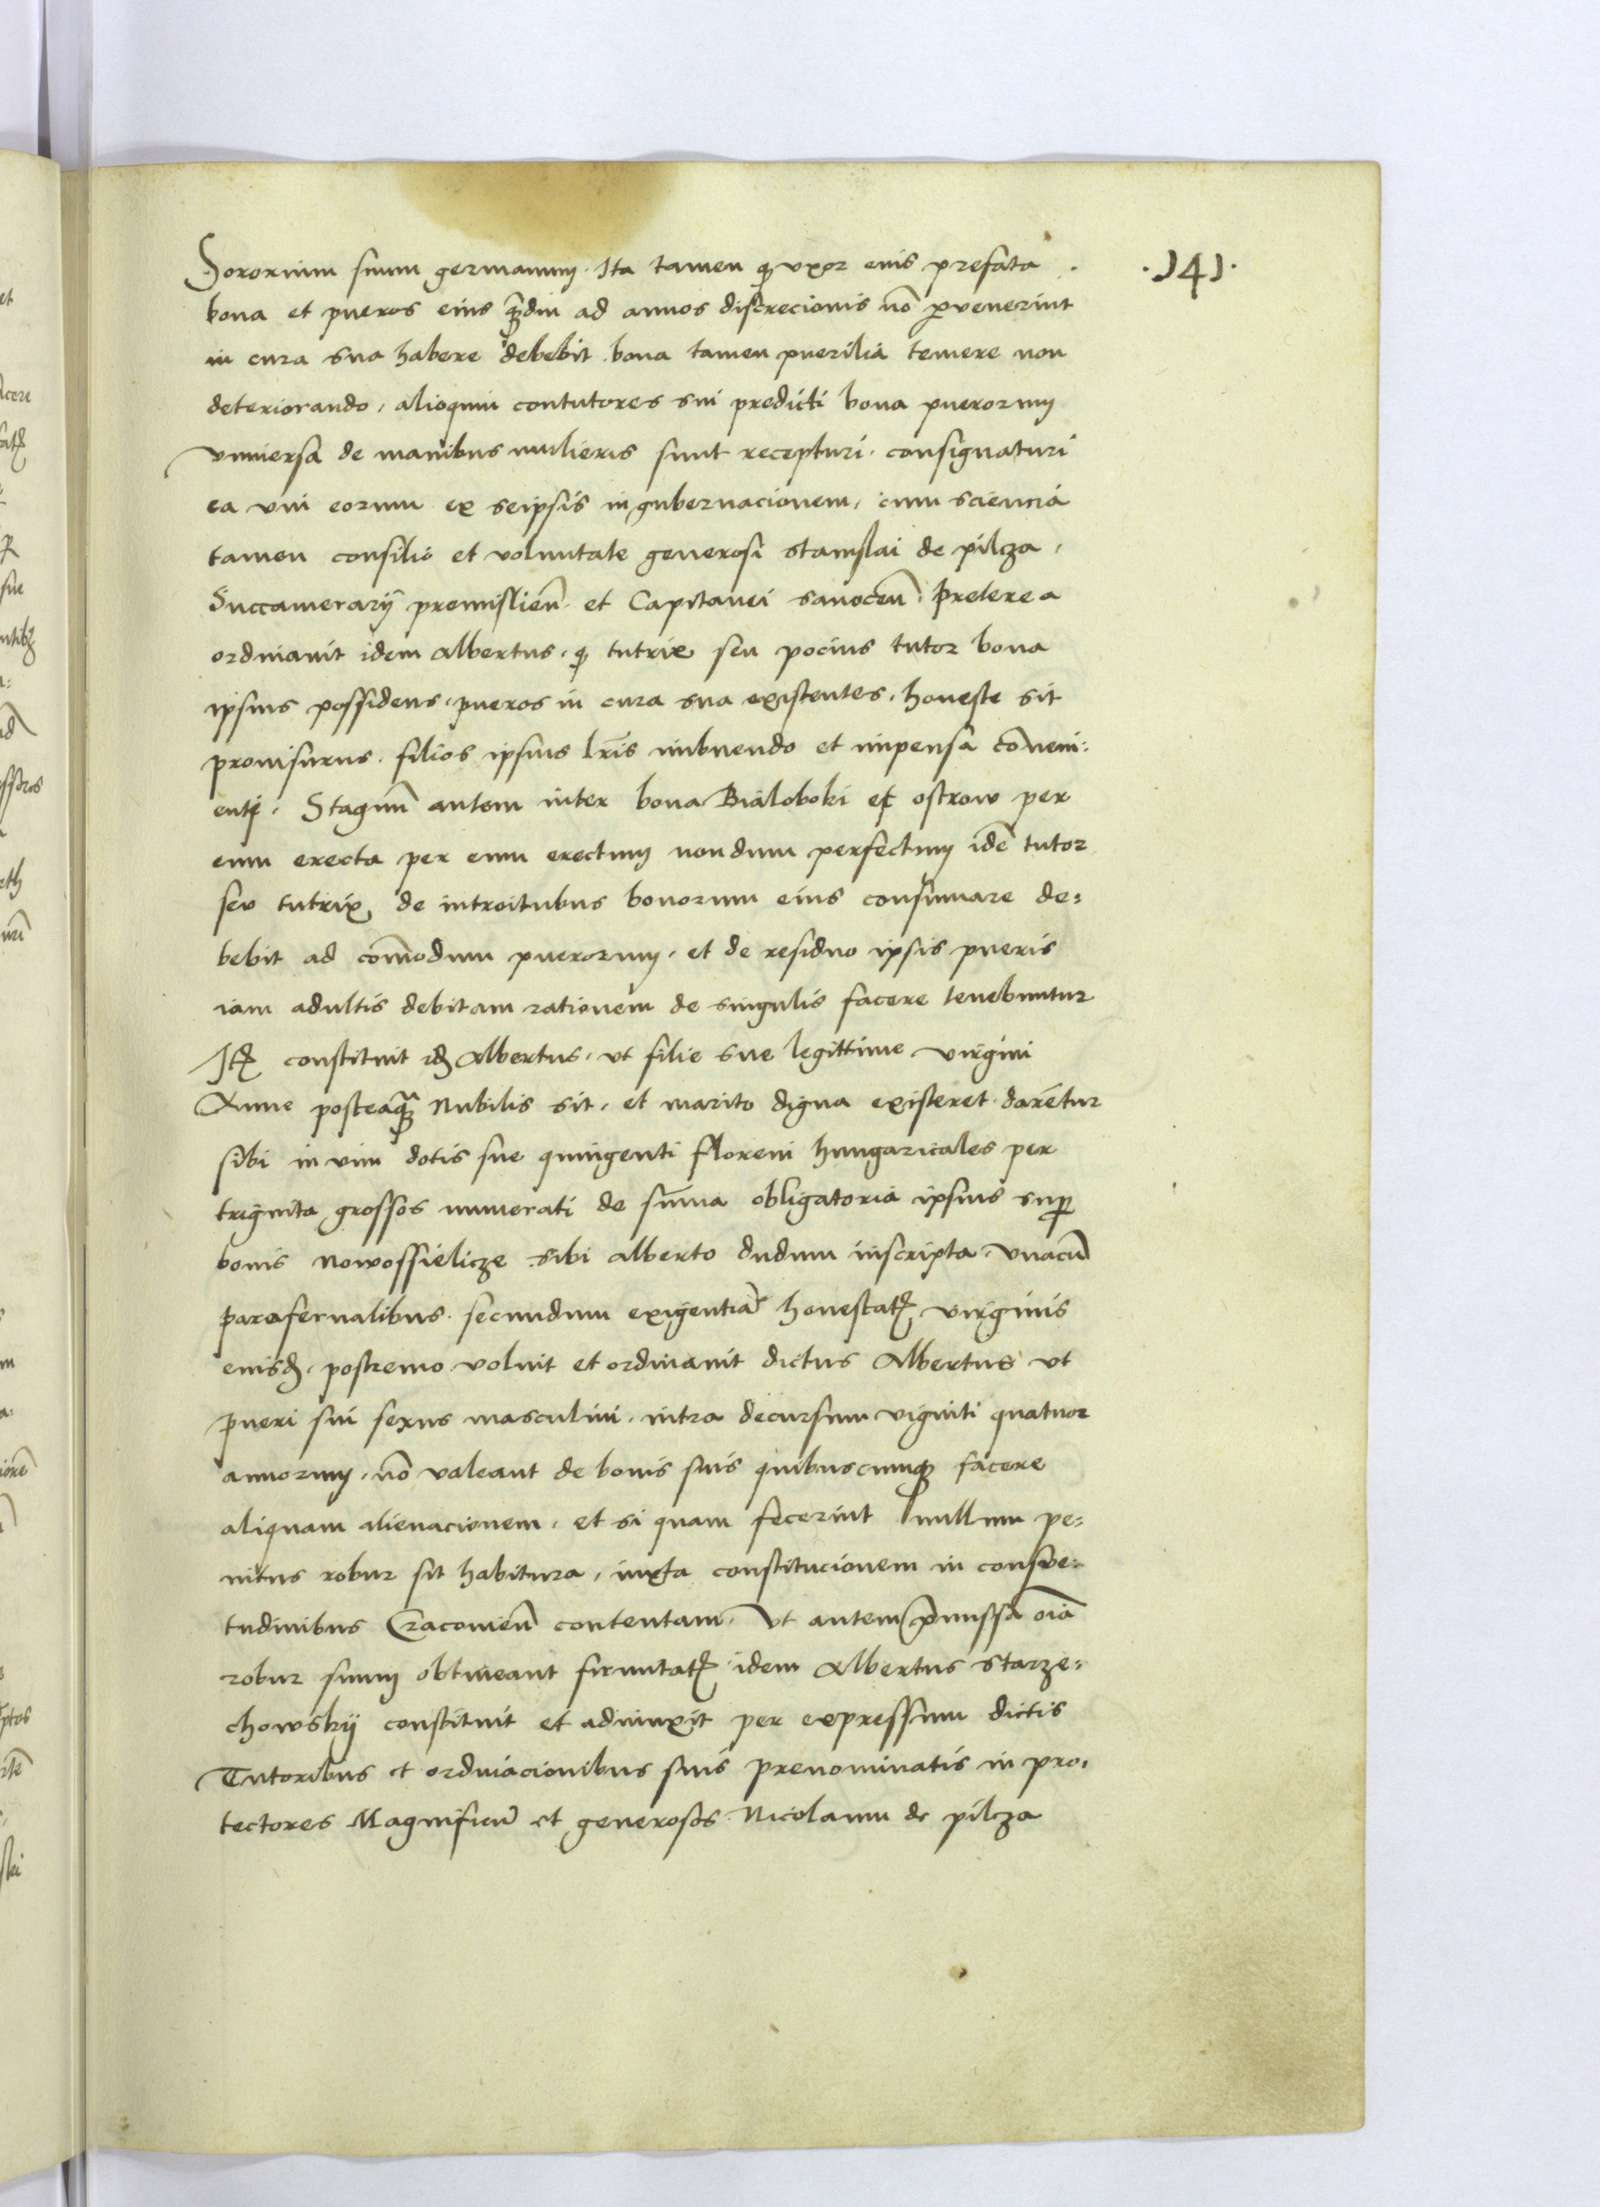 Sororium suum germanum. Ita tamen qꝫ vxor eius prefata
.141.
bona et pueros eius qͣꝫdiu ad annos discrecionis nō ꝑvenerint
in cura sua habere debebit. bona tamen puerilia temere non
deteriorando, alioquin contutores sui predicti bona puerorum
vniversa de manibus mulieris sunt recepturi. consignaturi
ea vni eorum ex seipsis in gubernacionem, cum sciencia
tamen consilio et voluntate generosi stanislai de pilcza,
Succamerarij premislieñ. et Capitanei sanoceñ. Preterea
ordinavit idem Albertus. qꝫ tutrix seu pocius tutor bona
ipsius possidens, pueros in cura sua existentes, honeste sit
provisurus. filios ipsius lr̃is imbuendo et impensa conveni:
enti. Stagnũ autem inter bona Bialoboki et ostrow per
eum erecta per eum erectum nondum perfectum idẽ tutor
seu tutrix, de introitubus bonorum eius consumare de:
bebit ad com̃odum puerorum, et de residuo ipsis pueris
iam adultis debitam rationem de singulis facere tenebuntur
Itꝫ constituit idꝫ Albertus, vt filie sue legittime virgini
Anne posteaqͣꝫ Nubilis sit, et marito digna existeret darẽtur
sibi in vim dotis sue quingenti floreni hungaricales per
triginta grossos numerati de sum̃a obligatoria ipsius supꝫ
bonis Nowossielicze sibi alberto dudum inscripta, vnacũ
parafernalibus. secundum exigentiã honestatꝭ virginis
eiusdꝫ. postremo voluit et ordinavit dictus Albertus vt
pueri sui sexus masculini. intra decursum viginti quatuor
annorum, nō valeant de bonis suis quibuscumqꝫ facere
aliquam alienacionem, et si quam fecerint nullum pe:
nitus robur sit habitura, iuxta constitucionem in consve:
tudinibus Cracovieñ contentam. Vt autem p̃missa oĩa
robur suum obtineant firmitatꝭ. idem Albertus starze:
chowskij constituit et adiunxit per expressum dictis
Tutoribus et ordinacionibus suis prenominatis in pro:
tectores Magnificũ et generosos Nicolaum de pilcza